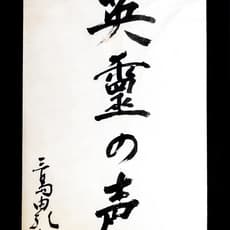 英霊の声
三島由紀